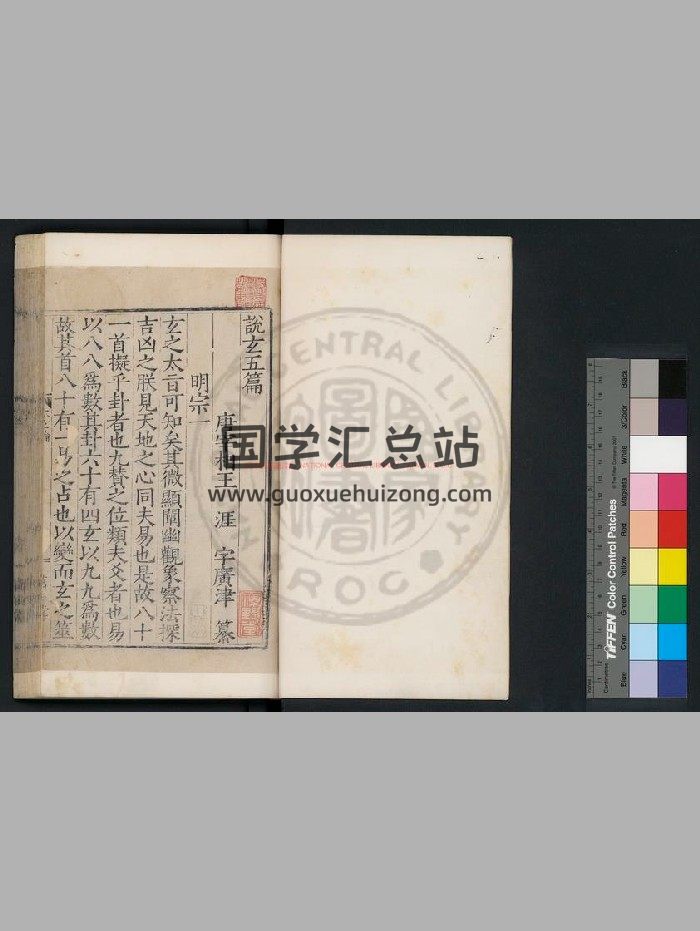 說玄五篇
唐宰相王 涯 字廣津 纂
明宗一
玄之太旨可知矣其微顯闡幽觀象察法探
吉凶之朕見天地之心同夫易也是故八十
一首擬乎卦者也九贊之位類夫爻者也易
以八八爲數其卦六十有四玄以九九爲數
故其首八十有一易之占也以變而玄之筮
国学汇总站
www.guoxuehuizong.com
CENTRAL LIBRARY
R.O.C
TIFFEN Color Control Patches
© The Tiffen Company, 2007
Blue
Cyan
Green
Yellow
Red
Magenta
White
3/Color
Black